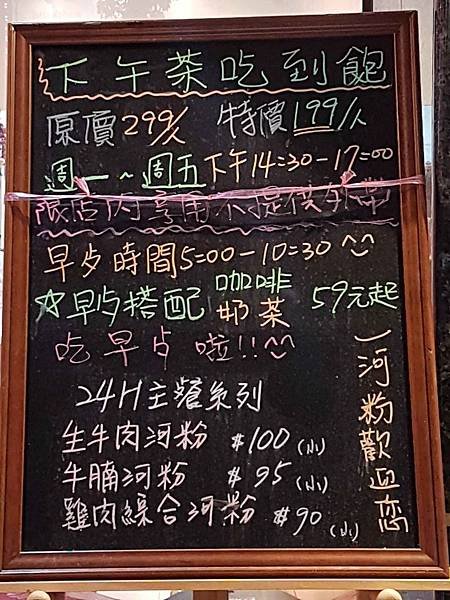 下午茶吃到飽
原價299/人 特價199/人
週一～週五下午14:30-17:00
限店內享用不提供外帶
早夕時間5:00-10:30
☆早夕搭配咖啡奶茶59元起
吃早夕啦!!
24H主餐系列
生牛肉河粉 $100(小)
牛腩河粉 $95(小)
雞肉綜合河粉 $90(小)
一河粉歡迎您